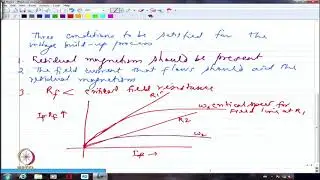 Three conditions to be satisfied for the
voltage build-up process
1. Residual magnetism should be present
2. The field current that flows should aid the
residual magnetism
3. Rf < critical field resistance
R1
ω1 critical speed for
field line at R1
If Rf ↑
R2
ω2
If →